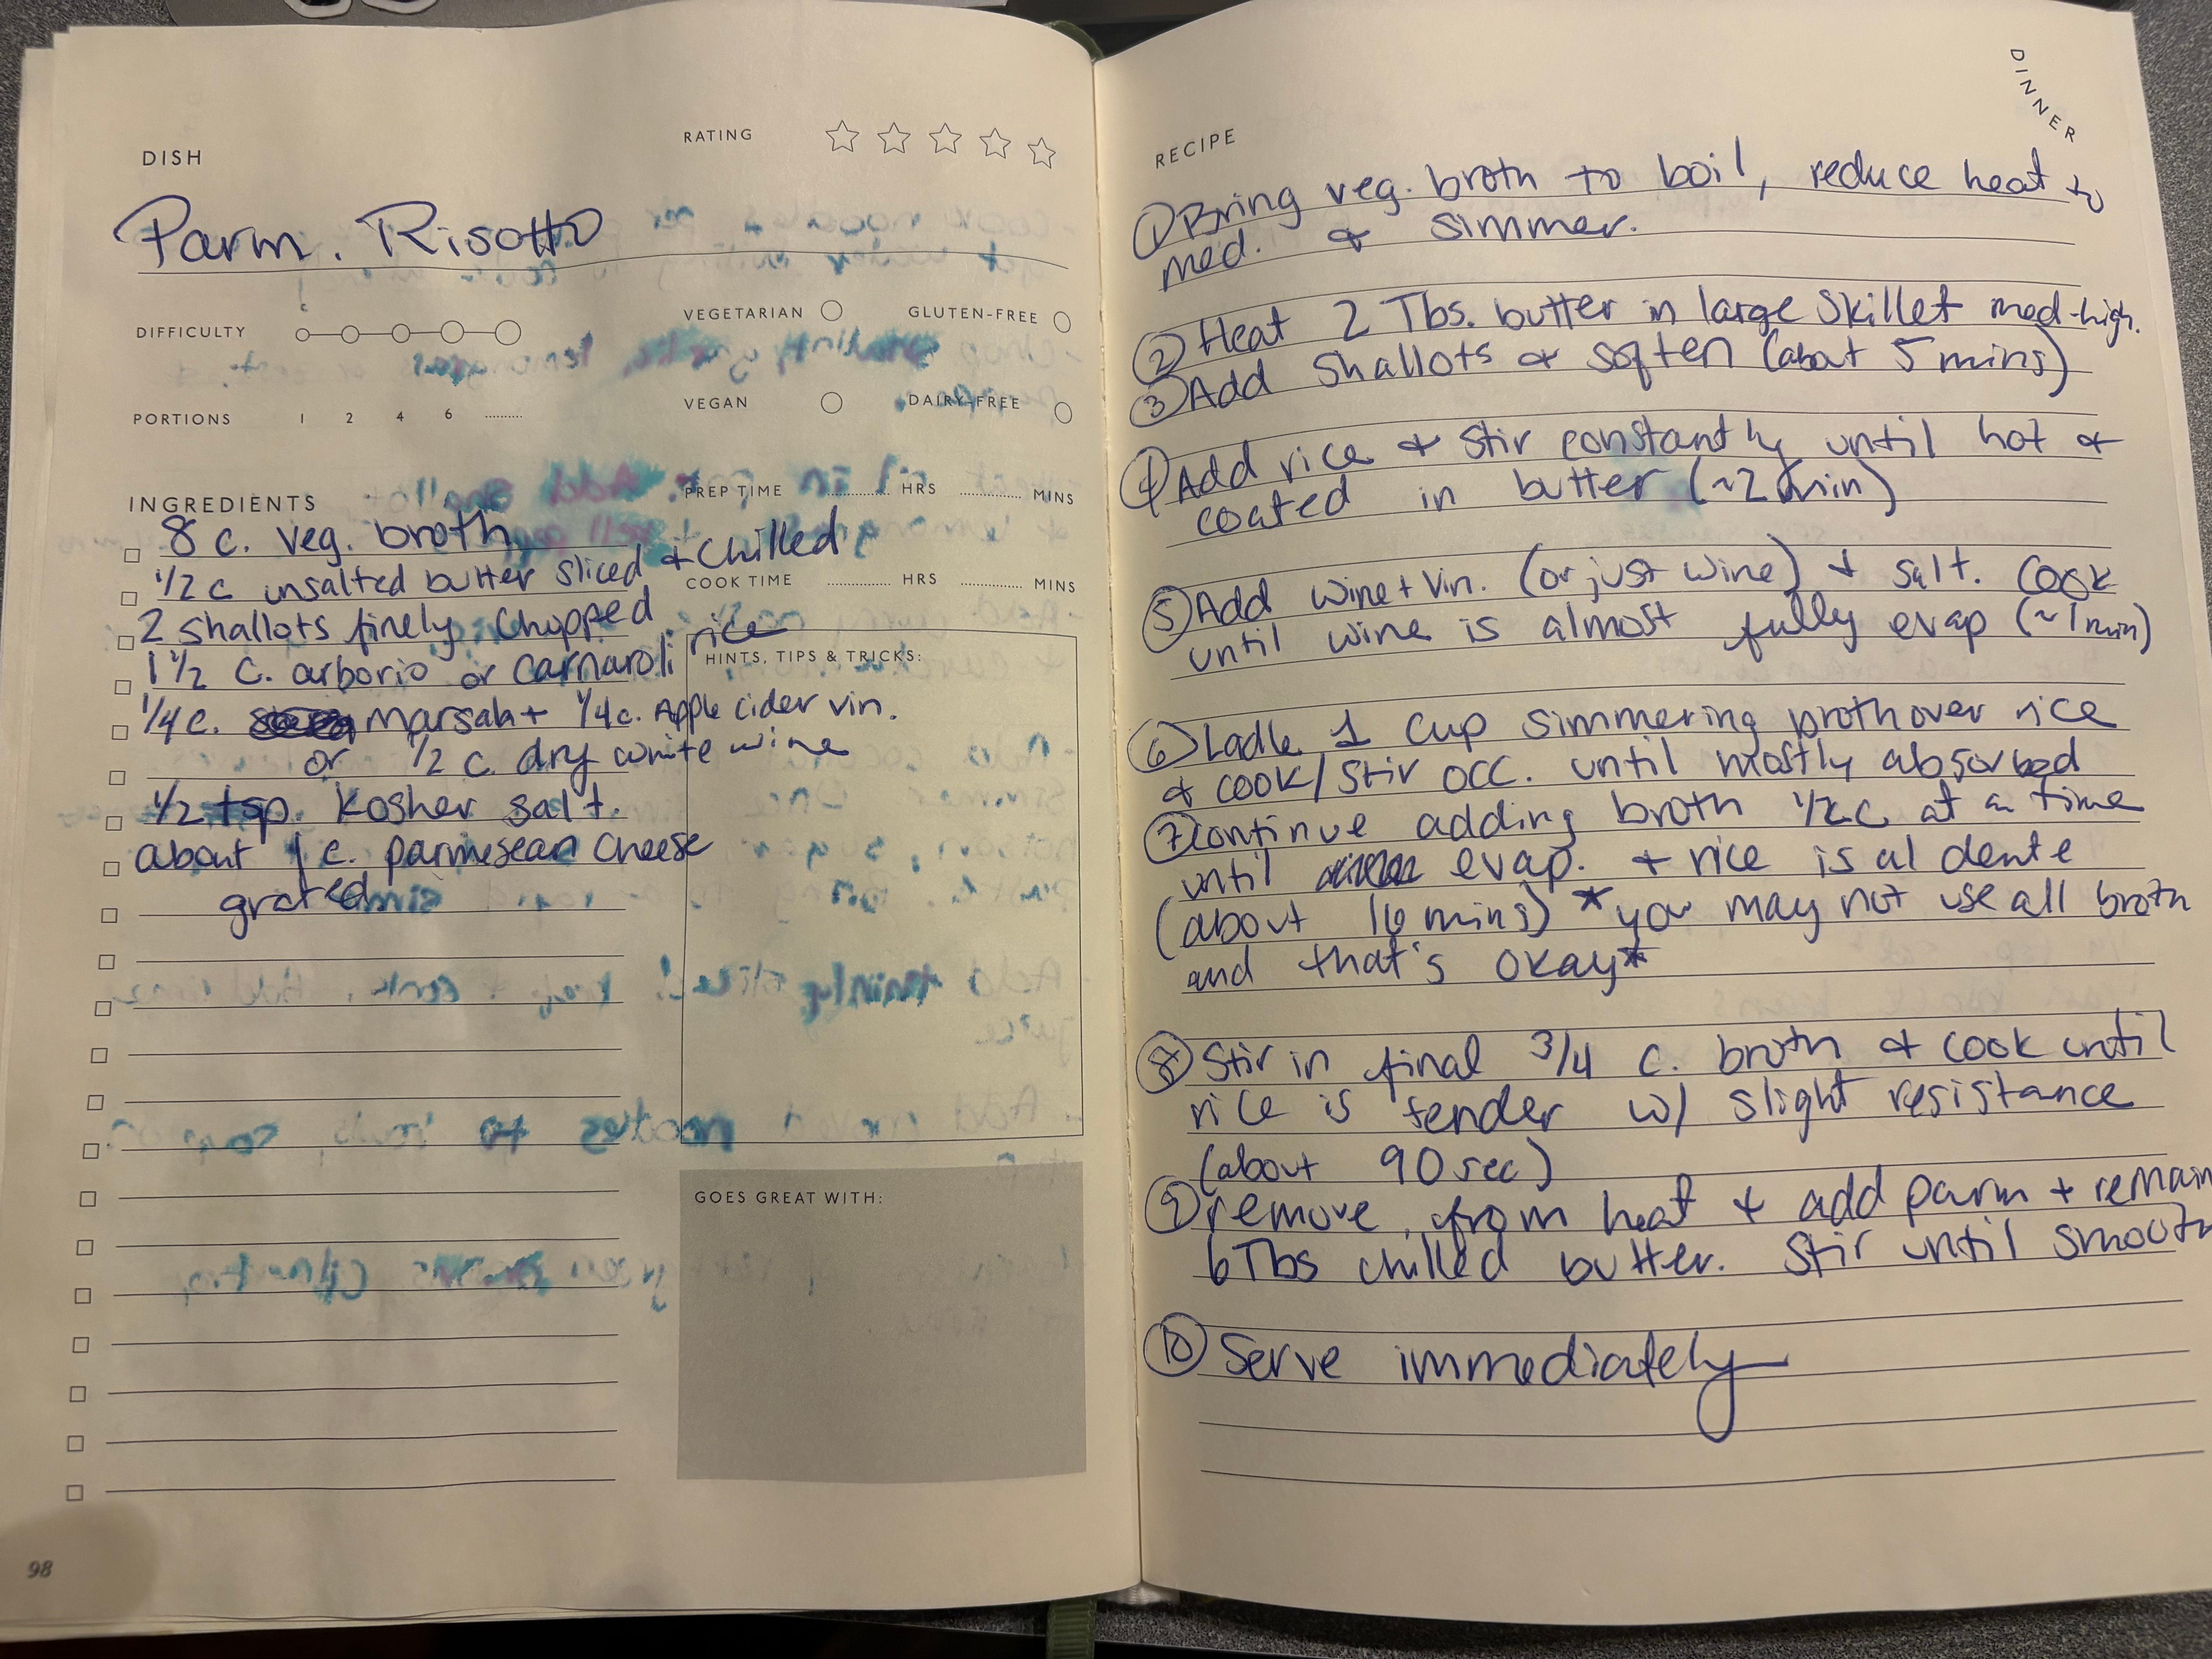 DISH
RATING
Parm. Risotto
DIFFICULTY
VEGETARIAN
GLUTEN-FREE
PORTIONS 1 2 4 6 ........
VEGAN
DAIRY-FREE
INGREDIENTS
PREP TIME ............ HRS ............ MINS
8 c. veg. broth
1/2 c unsalted butter sliced & chilled
COOK TIME ............ HRS ............ MINS
2 shallots finely chopped
1 1/2 c. arborio or carnaroli rice
HINTS, TIPS & TRICKS:
1/4 c. Marsala + 1/4 c. Apple cider vin.
or 1/2 c. dry white wine
1/2 tsp. Kosher salt.
about 1 c. parmesean cheese
grated
GOES GREAT WITH:
98
DINNER
RECIPE
① Bring veg. broth to boil, reduce heat to
med. & simmer.
② Heat 2 Tbs. butter in large skillet med-high.
③ Add shallots & soften (about 5 mins)
④ Add rice & stir constantly until hot &
coated in butter (~2 min)
⑤ Add wine + vin. (or just wine) & salt. Cook
until wine is almost fully evap (~1 min)
⑥ Ladle 1 cup simmering broth over rice
& cook/stir occ. until mostly absorbed
⑦ Continue adding broth 1/2 c at a time
until evap. + rice is al dente
(about 16 mins) *you may not use all broth
and that's okay*
⑧ Stir in final 3/4 c. broth & cook until
rice is tender w/ slight resistance
(about 90 sec)
⑨ remove from heat & add parm + remain
6 Tbs chilled butter. Stir until smooth
⑩ Serve immediately